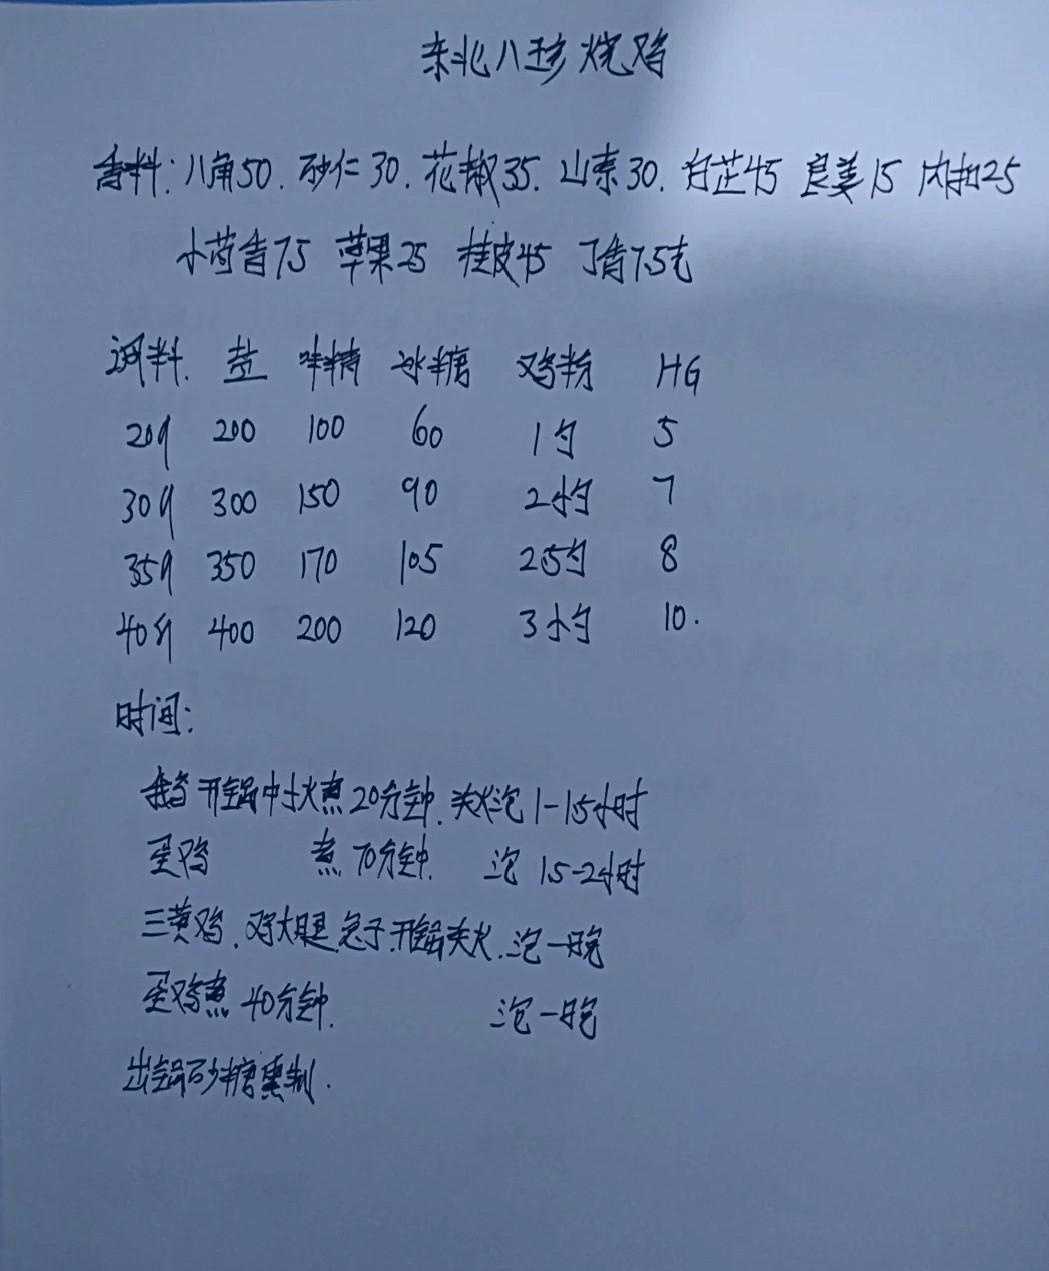 东北八珍烧鸡
香料:八角50.砂仁30.花椒35.山柰30.白芷45 良姜15 肉扣25
小茴香75 草果25 桂皮45 丁香7.5克
调料. 盐 味精 冰糖 鸡粉 HG
20只 200 100 60 1勺 5
30只 300 150 90 2小勺 7
35只 350 170 105 2.5勺 8
40只 400 200 120 3小勺 10.
时间:
鸡 开锅中小火煮20分钟.关火泡1-1.5小时
蛋鸡 煮70分钟. 泡 1.5-2小时
三黄鸡.鸡大腿 开锅关火.泡一晚
蛋鸡煮40分钟. 泡一晚
出锅砂糖熏制.